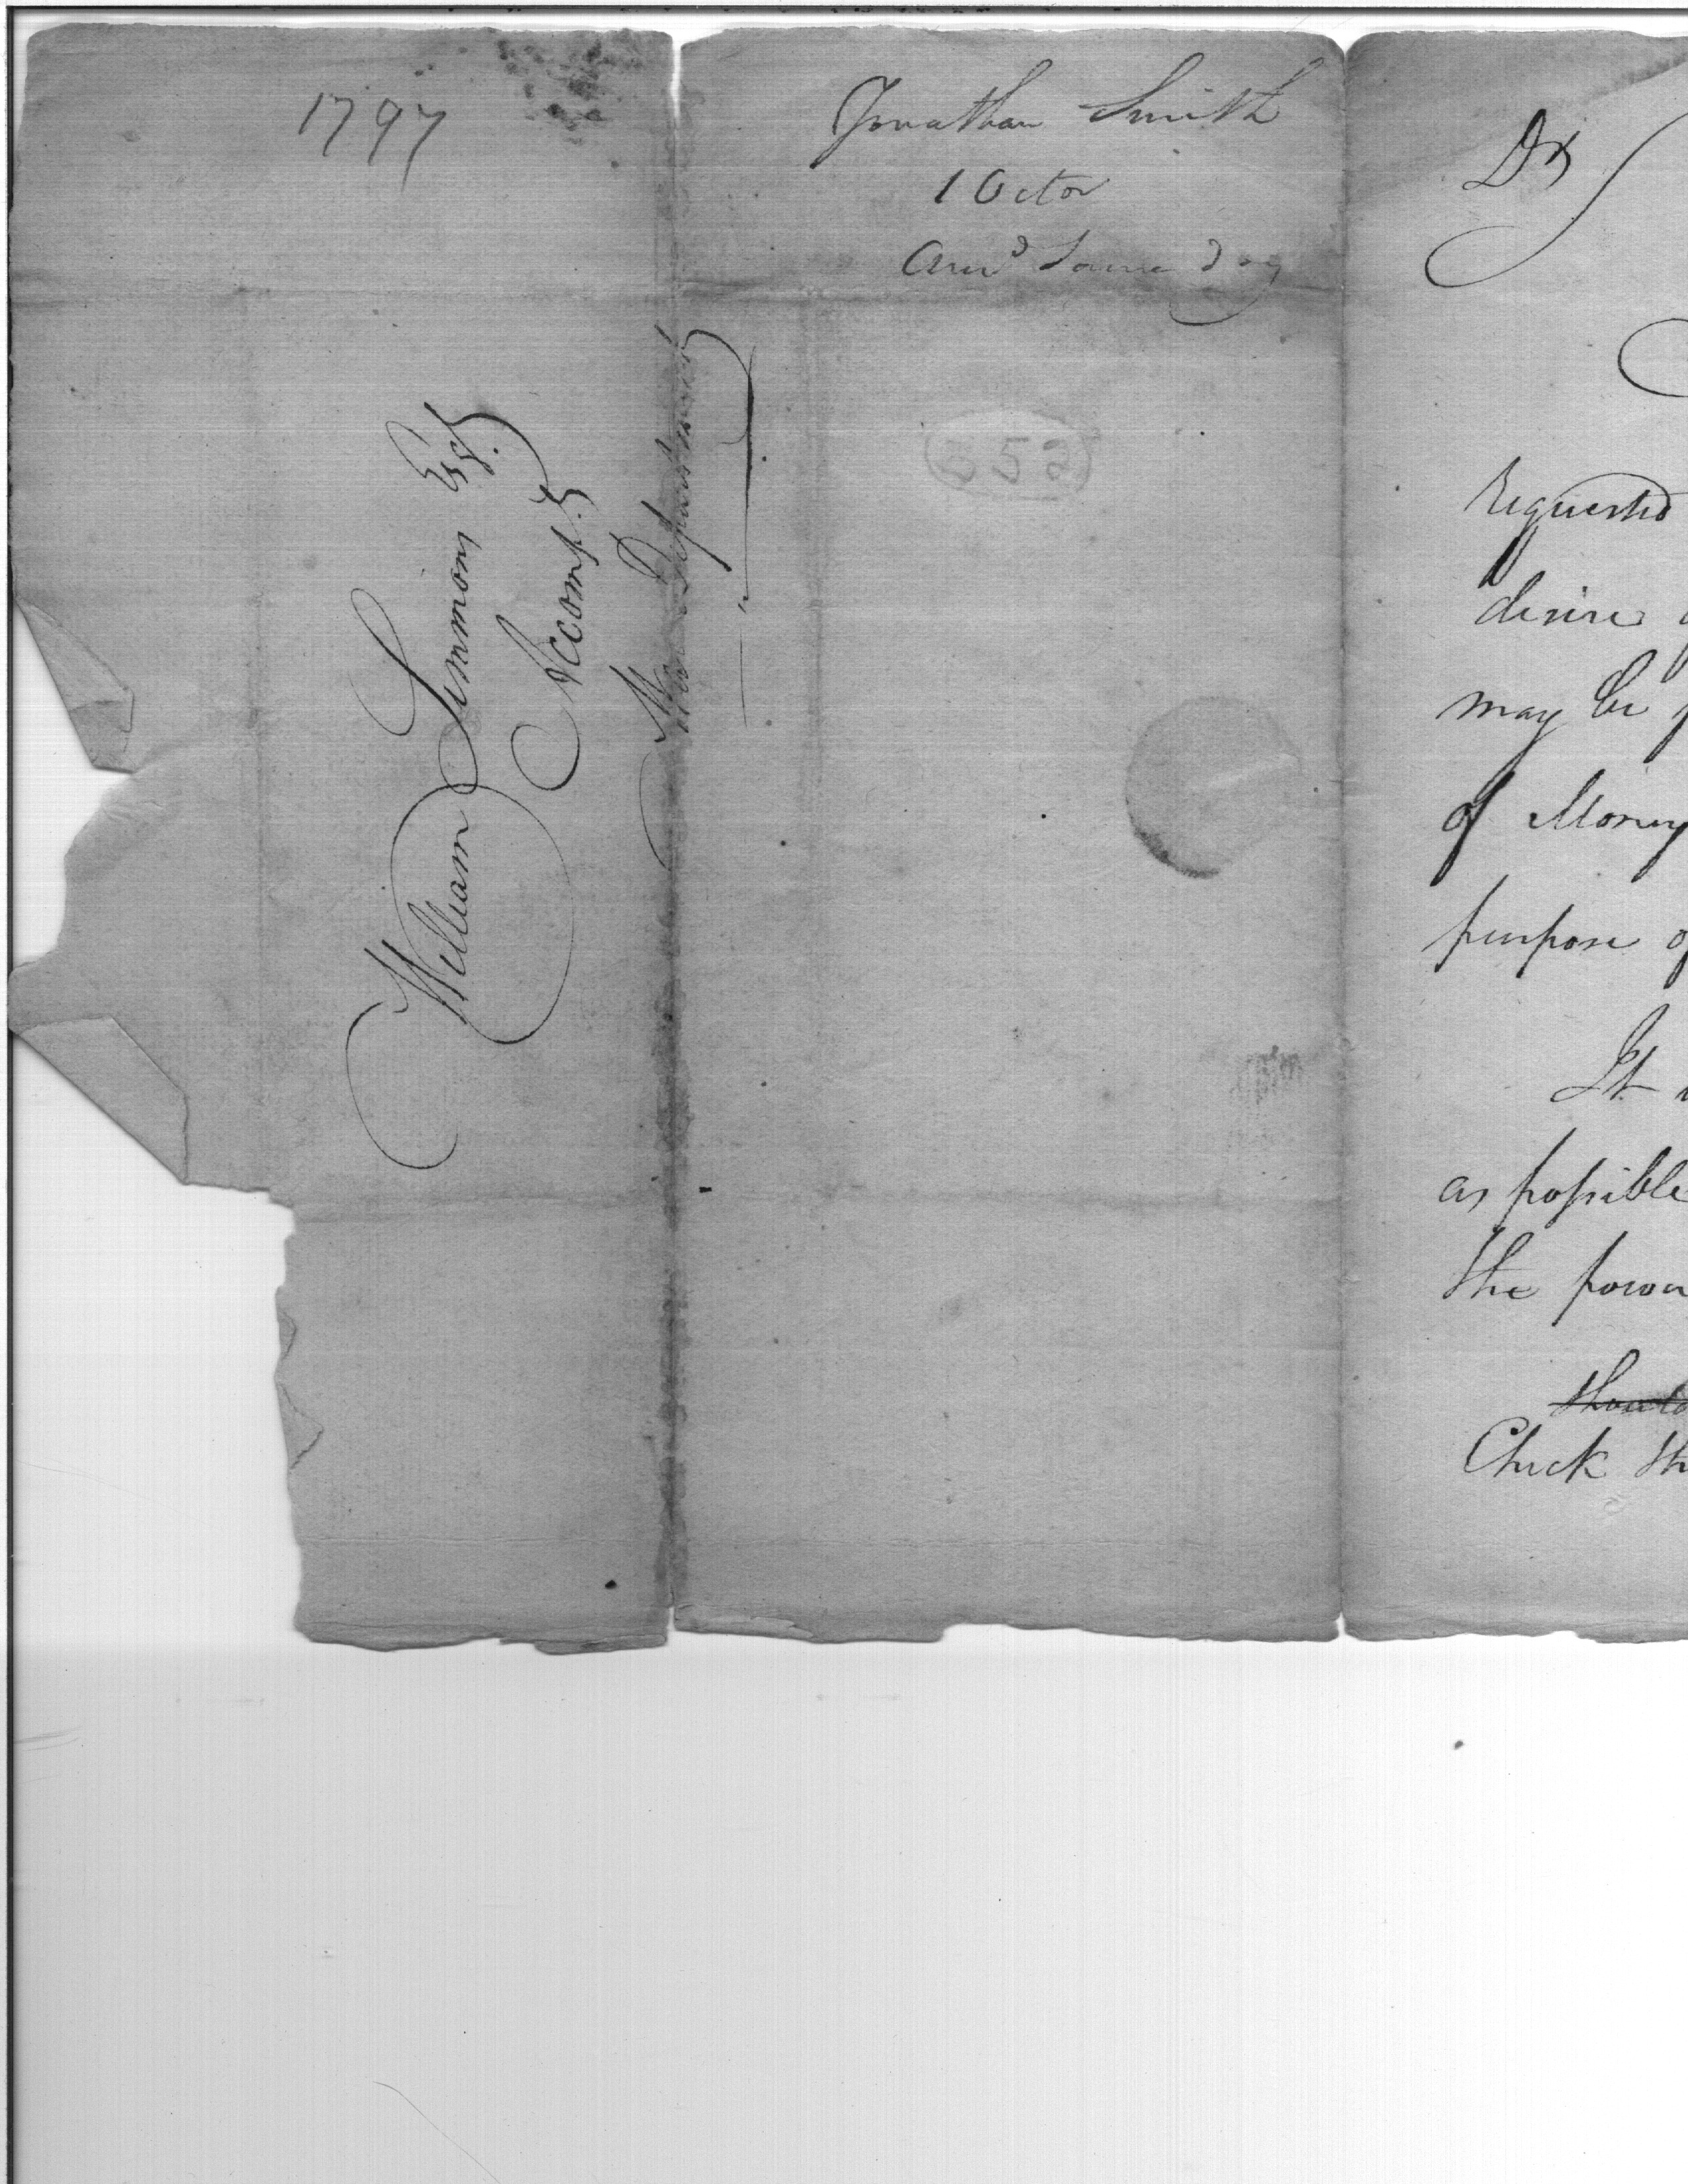 1797
William Simmons Esqr.
Accompt.
War Department
Jonathan Smith
1 Octor
Answd Same day
353
Dr
requested
desire
may be
of Money
purpose of
It
as possible
the power
should
Check